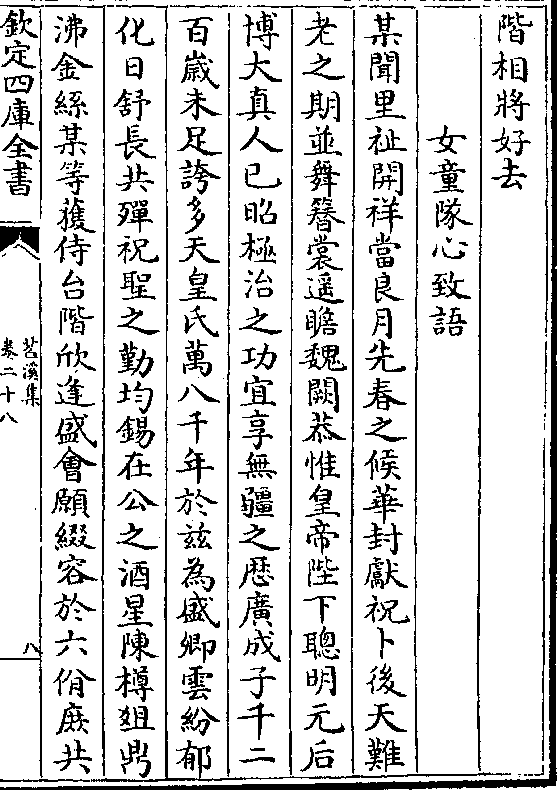 階相將好去
女童隊心致語
某聞里祉開祥當良月先春之候華封獻祝卜後天難
老之期並舞簪裳遥瞻魏闕恭惟皇帝陛下聰明元后
博大真人已昭極治之功宜享無疆之厯廣成子千二
百嵗未足誇多天皇氏萬八千年於兹為盛卿雲紛郁
化日舒長共殫祝聖之勤均錫在公之酒星陳樽俎鼎
沸金絲某等獲侍台階欣逢盛會願綴容於六佾庶共
欽定四庫全書
苕溪集
卷二十八
八